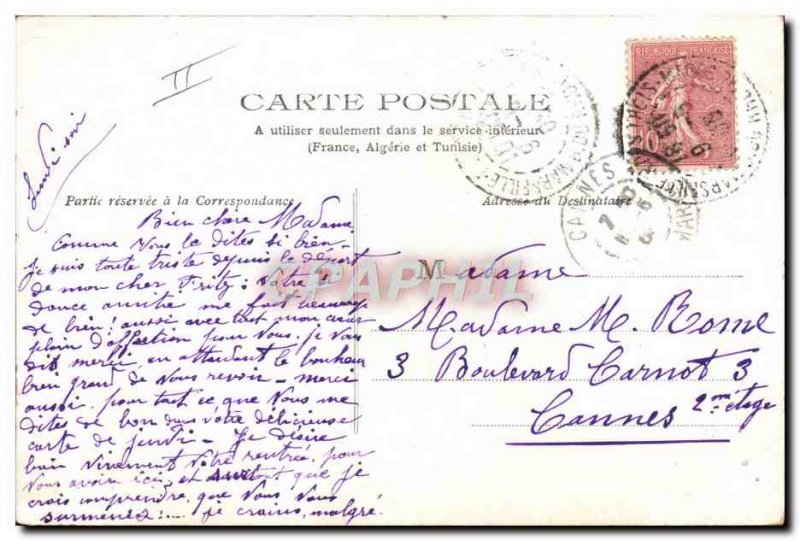 II
CARTE POSTALE
A utiliser seulement dans le service intérieur
(France, Algérie et Tunisie)
REPUBLIQUE FRANÇAISE
10
Partie réservée à la Correspondance
Adresse du Destinataire
CANNES
Lundi soir
Bien chère Madame
Comme vous le dites si bien
je suis toute triste depuis le départ
de mon cher Fritz; votre
douce amitié me fait beaucoup
de bien! aussi avec tout mon cœur
plein d'affection pour vous, je vous
dis merci en attendant le bonheur
bien grand de vous revoir - merci
aussi pour tout ce que vous me
dites de bon dans votre délicieuse
carte de jeudi - Je désire
bien vivement votre rentrée, pour
vous avoir ici, et surtout que je
crois comprendre, que vous vous
surmenez!... je crains, malgré
Madame
Madame M. Rome
3 Boulevard Carnot 3
Cannes 2me étage
CPAPHIL